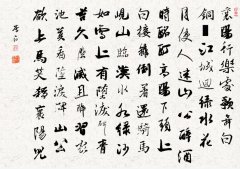 襄陽行樂處歌舞白
銅鞮江城迴綠水花
月使人迷山公醉酒
時酩酊陽下頭上
白接籬倒著還騎馬
峴山臨漢水綠沙
如雪上有墮淚碑青
苔久磨滅且醉習家
池莫看墮淚碑山公
欲上馬笑殺襄陽兒